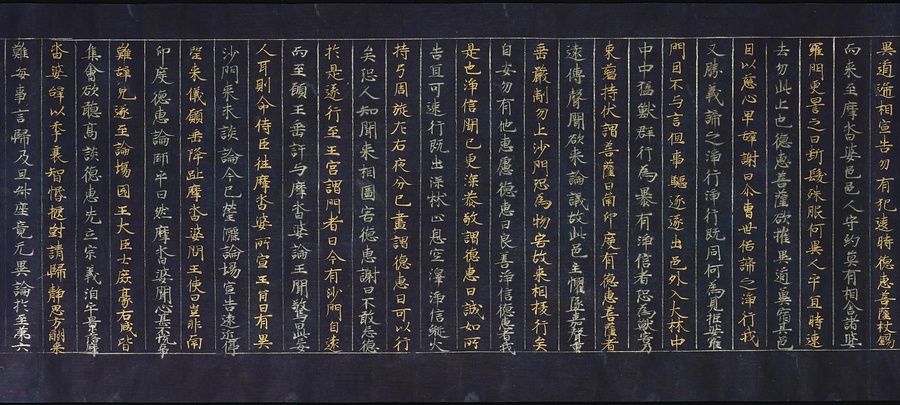 異道遞相宣告勿有犯違時德慧菩薩杖錫
而來至摩沓婆邑邑人守約莫有相舍諸婆
羅門更詈之曰斷髮殊服何異人乎宜時速
去勿此止也德慧菩薩欲摧異道冀宿其邑
因以慈心卑辞謝曰令曹世俗諦之淨行我
又勝義諦之淨行淨行既同何為見推婆羅
門因不与言但事驅逐逐出邑外入大林中
中中猛獸群行為暴有淨信者恐為獸害乃
束蘊持伏謂菩薩曰南印度有德慧菩薩者
遠傳聲聞欲来論議故此邑主懼墜嘉聲重
垂嚴制勿止沙門恐為物害故来相援行矣
自安勿有他慮德慧曰良善淨信德慧者我
是也淨信聞已更深恭敬謂德慧曰誠如所
告宜可速行既出深林止息空澤淨信縱火
持弓周旋左右夜分已盡謂德慧曰可以行
矣恐人知聞来相圖害德慧謝曰不敢忘德
於是遂行至王宮謂門者曰今有沙門自遠
而至願王垂許与摩沓婆論王聞驚曰此妄
人耳即命侍臣往摩沓婆所宣王旨曰有異
沙門来求談論今已瑩灑論場宣告遠近佇
望来儀願垂降趾摩沓婆問王使曰豈非南
印度德慧論師乎曰然摩沓婆聞心甚不悅事
難辞免遂至論場國王大臣士庶豪右咸皆
集會欲聽高談德慧先立宗義洎乎景落摩
沓婆辞以年衰智惛捷對請歸靜思方酬来
難每事言歸及旦昇座竟无異論於至第六